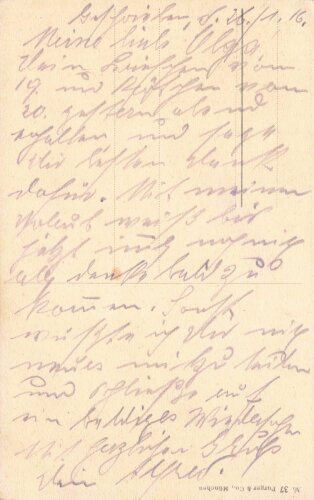 Geschrieben, d. 26/1.16.
Meine liebe Olga!
Dein Briefchen vom
19. und Kärtchen vom
20. gestern abend
erhalten und sage
dir besten Dank
dafür. Mit meinem
Urlaub weiß bis
jetzt noch
als denke bald zu
kommen. Sonst
wüßte ich dir nichts
neues mitzuteilen
und schließe auf
ein baldiges Wiedersehen
Mit herzlichem Gruß
dein Alfred.
№ 37 Purger & Co., München